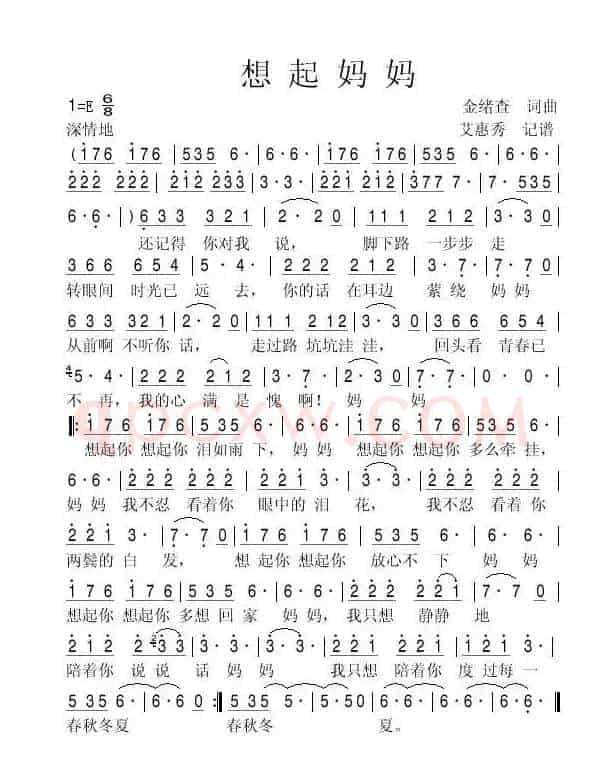 想起妈妈
1=E 6/8 金绪查 词曲
深情地 艾惠秀 记谱
(176 176 | 535 6· | 6·6· | 176 176 | 535 6· | 6·6· |
222 222 | 212 233 | 3·3· | 221 212 | 377 7· | 7·535 |
6·6· |) 633 321 | 2·20 | 111 212 | 3·30 |
还记得 你对我 说， 脚下路 一步步 走
366 654 | 5·4· | 222 212 | 3·7· | 7·70 |
转眼间 时光已 远 去， 你的话 在耳边 萦 绕 妈 妈
633 321 | 2·20 | 111 212 | 3·30 | 366 654 |
从前啊 不听你 话， 走过路 坑坑洼 洼， 回头看 青春已
5·4· | 222 212 | 3·3· | 7·7· | 0·0· |
不 再，我的心 满 是 愧 啊！ 妈 妈
‖: 176 176 | 535 6· | 6·6· | 176 176 | 535 6· |
想起你 想起你 泪如雨 下，妈 妈 想起你 想起你 多么牵 挂，
6·6· | 222 212 | 233 3· | 3·30 | 222 212 |
妈 妈 我不忍 看着你 眼中的 泪 花， 我不忍 看着 你
221 3· | 7·70 | 176 176 | 535 6· | 6·6· |
两鬓的 白 发， 想 起你 想起你 放心不 下 妈 妈
176 176 | 535 6· | 6·6· | 222 221 | 7·70 |
想起你 想起你 多想 回 家 妈 妈，我只想 静静 地
212 233 | 3·3· | 222 212 | 377 7· |
陪着你 说说 话 妈 妈 我只想 陪着你 度 过每 一
535 6· | 6·60 :‖ 535 6· | 5·50 | 6·6· | 6·60 ‖
春秋冬夏 春秋冬 夏。